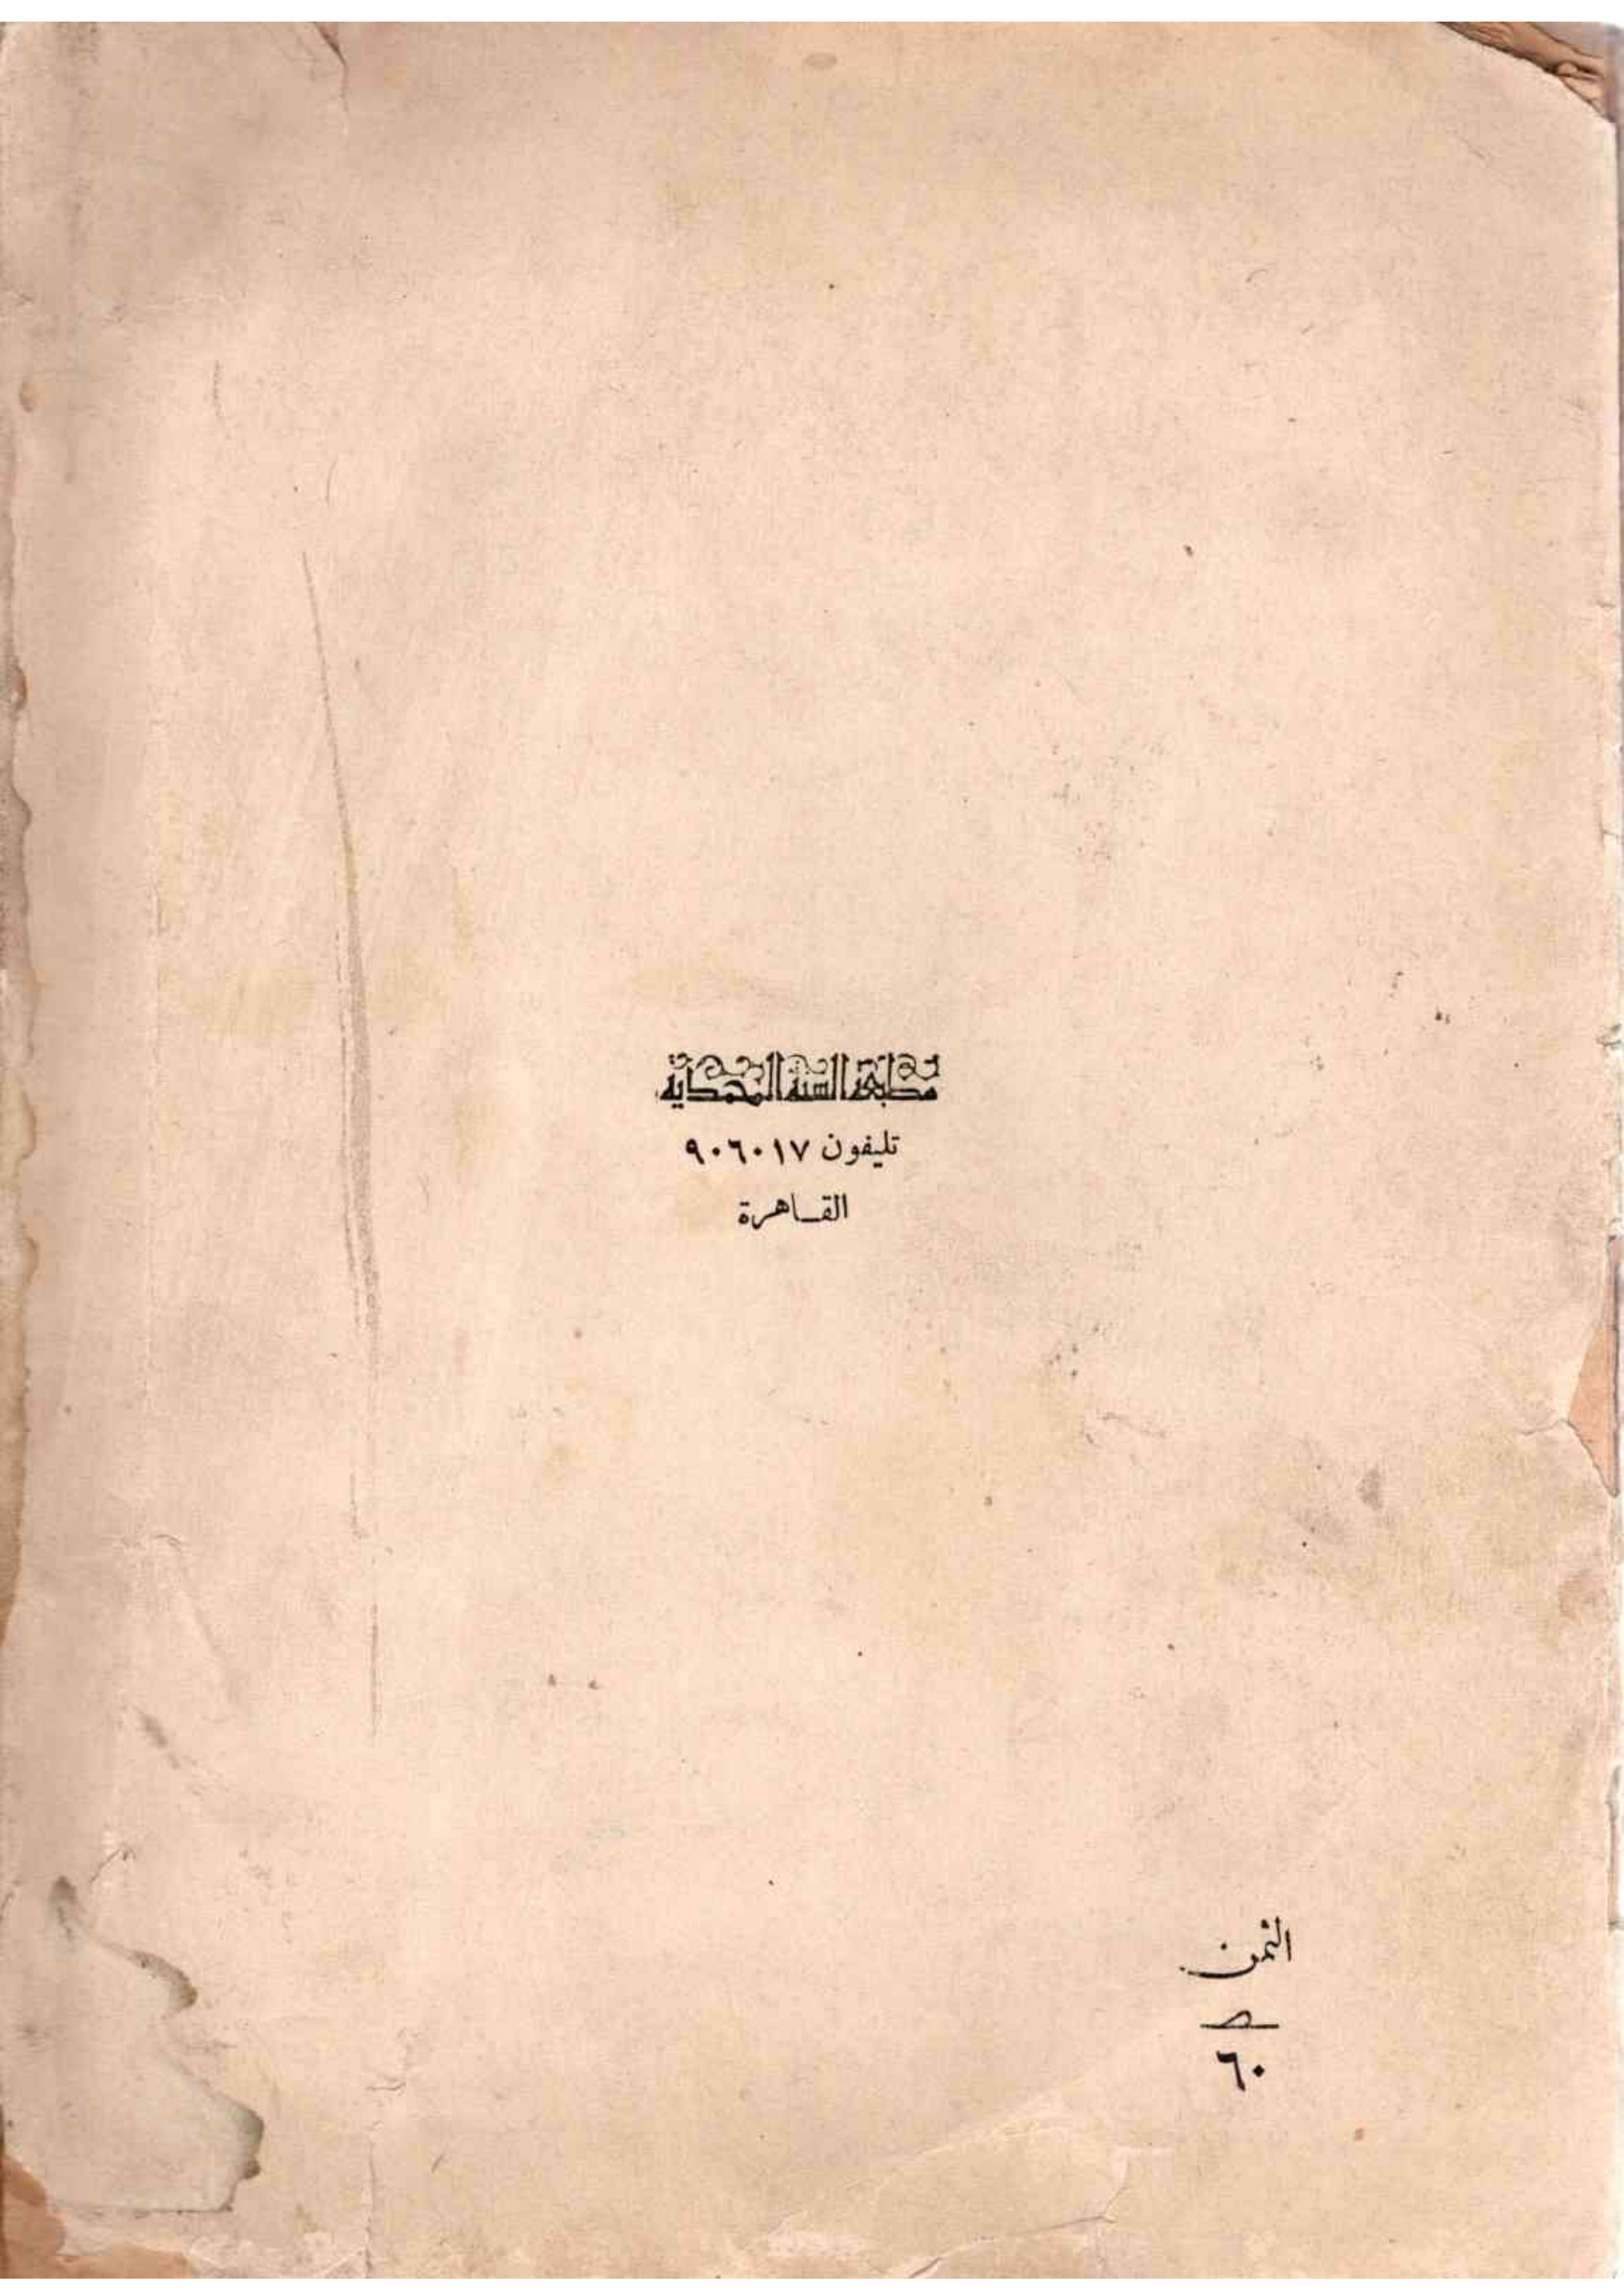 مطبعة السنة المحمدية
تليفون ٩٠٦٠١٧
القاهرة
الثمن
٦٠